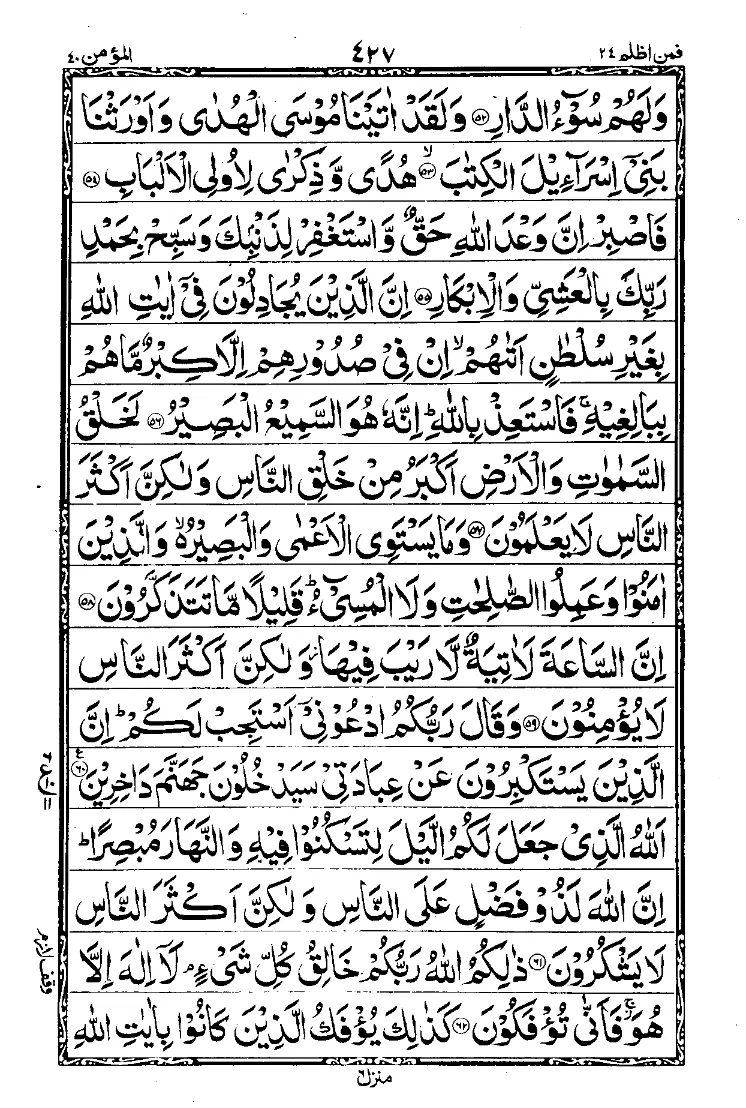 فمن اظلم ٢٤
٤٢٧
المؤمن ٤٠
وَلَهُمْ سُوْٓءُ الدَّارِ ﴿۵۲﴾ وَلَقَدْ اٰتَيْنَا مُوْسَى الْهُدٰى وَاَوْرَثْنَا
بَنِيْٓ اِسْرَآءِيْلَ الْكِتٰبَ ﴿۵۳﴾ۙ هُدًى وَّذِكْرٰى لِاُولِى الْاَلْبَابِ ﴿۵۴﴾
فَاصْبِرْ اِنَّ وَعْدَ اللّٰهِ حَقٌّ وَّاسْتَغْفِرْ لِذَنْۢبِكَ وَسَبِّحْ بِحَمْدِ
رَبِّكَ بِالْعَشِيِّ وَالْاِبْكَارِ ﴿۵۵﴾ اِنَّ الَّذِيْنَ يُجَادِلُوْنَ فِيْٓ اٰيٰتِ اللّٰهِ
بِغَيْرِ سُلْطٰنٍ اَتٰىهُمْ ۙ اِنْ فِيْ صُدُوْرِهِمْ اِلَّا كِبْرٌ مَّا هُمْ
بِبَالِغِيْهِ ۚ فَاسْتَعِذْ بِاللّٰهِ ؕ اِنَّهٗ هُوَ السَّمِيْعُ الْبَصِيْرُ ﴿۵۶﴾ لَخَلْقُ
السَّمٰوٰتِ وَالْاَرْضِ اَكْبَرُ مِنْ خَلْقِ النَّاسِ وَلٰكِنَّ اَكْثَرَ
النَّاسِ لَا يَعْلَمُوْنَ ﴿۵۷﴾ وَمَا يَسْتَوِى الْاَعْمٰى وَالْبَصِيْرُ ۙ وَالَّذِيْنَ
اٰمَنُوْا وَعَمِلُوا الصّٰلِحٰتِ وَلَا الْمُسِيْٓءُ ؕ قَلِيْلًا مَّا تَتَذَكَّرُوْنَ ﴿۵۸﴾
اِنَّ السَّاعَةَ لَاٰتِيَةٌ لَّا رَيْبَ فِيْهَا ؗ وَلٰكِنَّ اَكْثَرَ النَّاسِ
لَا يُؤْمِنُوْنَ ﴿۵۹﴾ وَقَالَ رَبُّكُمُ ادْعُوْنِيْٓ اَسْتَجِبْ لَكُمْ ؕ اِنَّ
الَّذِيْنَ يَسْتَكْبِرُوْنَ عَنْ عِبَادَتِيْ سَيَدْخُلُوْنَ جَهَنَّمَ دَاخِرِيْنَ ﴿۶۰﴾ ع
اَللّٰهُ الَّذِيْ جَعَلَ لَكُمُ الَّيْلَ لِتَسْكُنُوْا فِيْهِ وَالنَّهَارَ مُبْصِرًا ؕ
اِنَّ اللّٰهَ لَذُوْ فَضْلٍ عَلَى النَّاسِ وَلٰكِنَّ اَكْثَرَ النَّاسِ
لَا يَشْكُرُوْنَ ﴿۶۱﴾ ذٰلِكُمُ اللّٰهُ رَبُّكُمْ خَالِقُ كُلِّ شَيْءٍ ۘ لَآ اِلٰهَ اِلَّا
هُوَ ۚ فَاَنّٰى تُؤْفَكُوْنَ ﴿۶۲﴾ كَذٰلِكَ يُؤْفَكُ الَّذِيْنَ كَانُوْا بِاٰيٰتِ اللّٰهِ
وقف لازم
منزل ٦